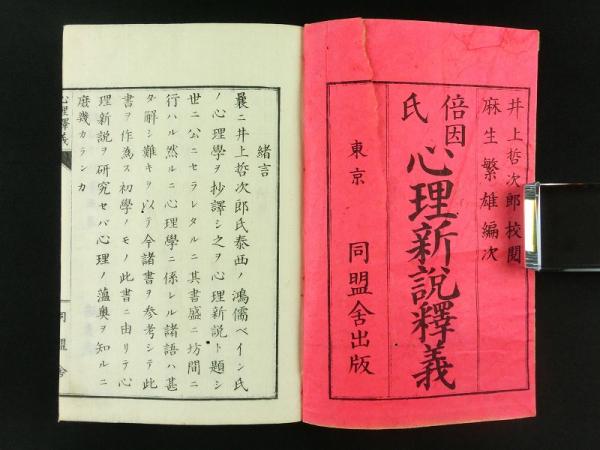 井上哲次郎校閲
麻生繁雄編次
倍因氏
心理新説釋義
東京 同盟舍出版
緒言
曩ニ井上哲次郎氏泰西ノ鴻儒ベイン氏
ノ心理學ヲ抄譯シ之ヲ心理新説ト題シ
世ニ公ニセラレタルニ其書盛ニ坊間ニ
行ハル然ルニ心理學ニ係レル諸語ハ甚
タ解シ難キヲ以テ今諸書ヲ參考シテ此
書ヲ作為ス初學ノモノ此書ニ由リテ心
理新説ヲ研究セバ心理ノ薀奥ヲ知ルニ
庶幾カランカ
心理釋義
同盟舍